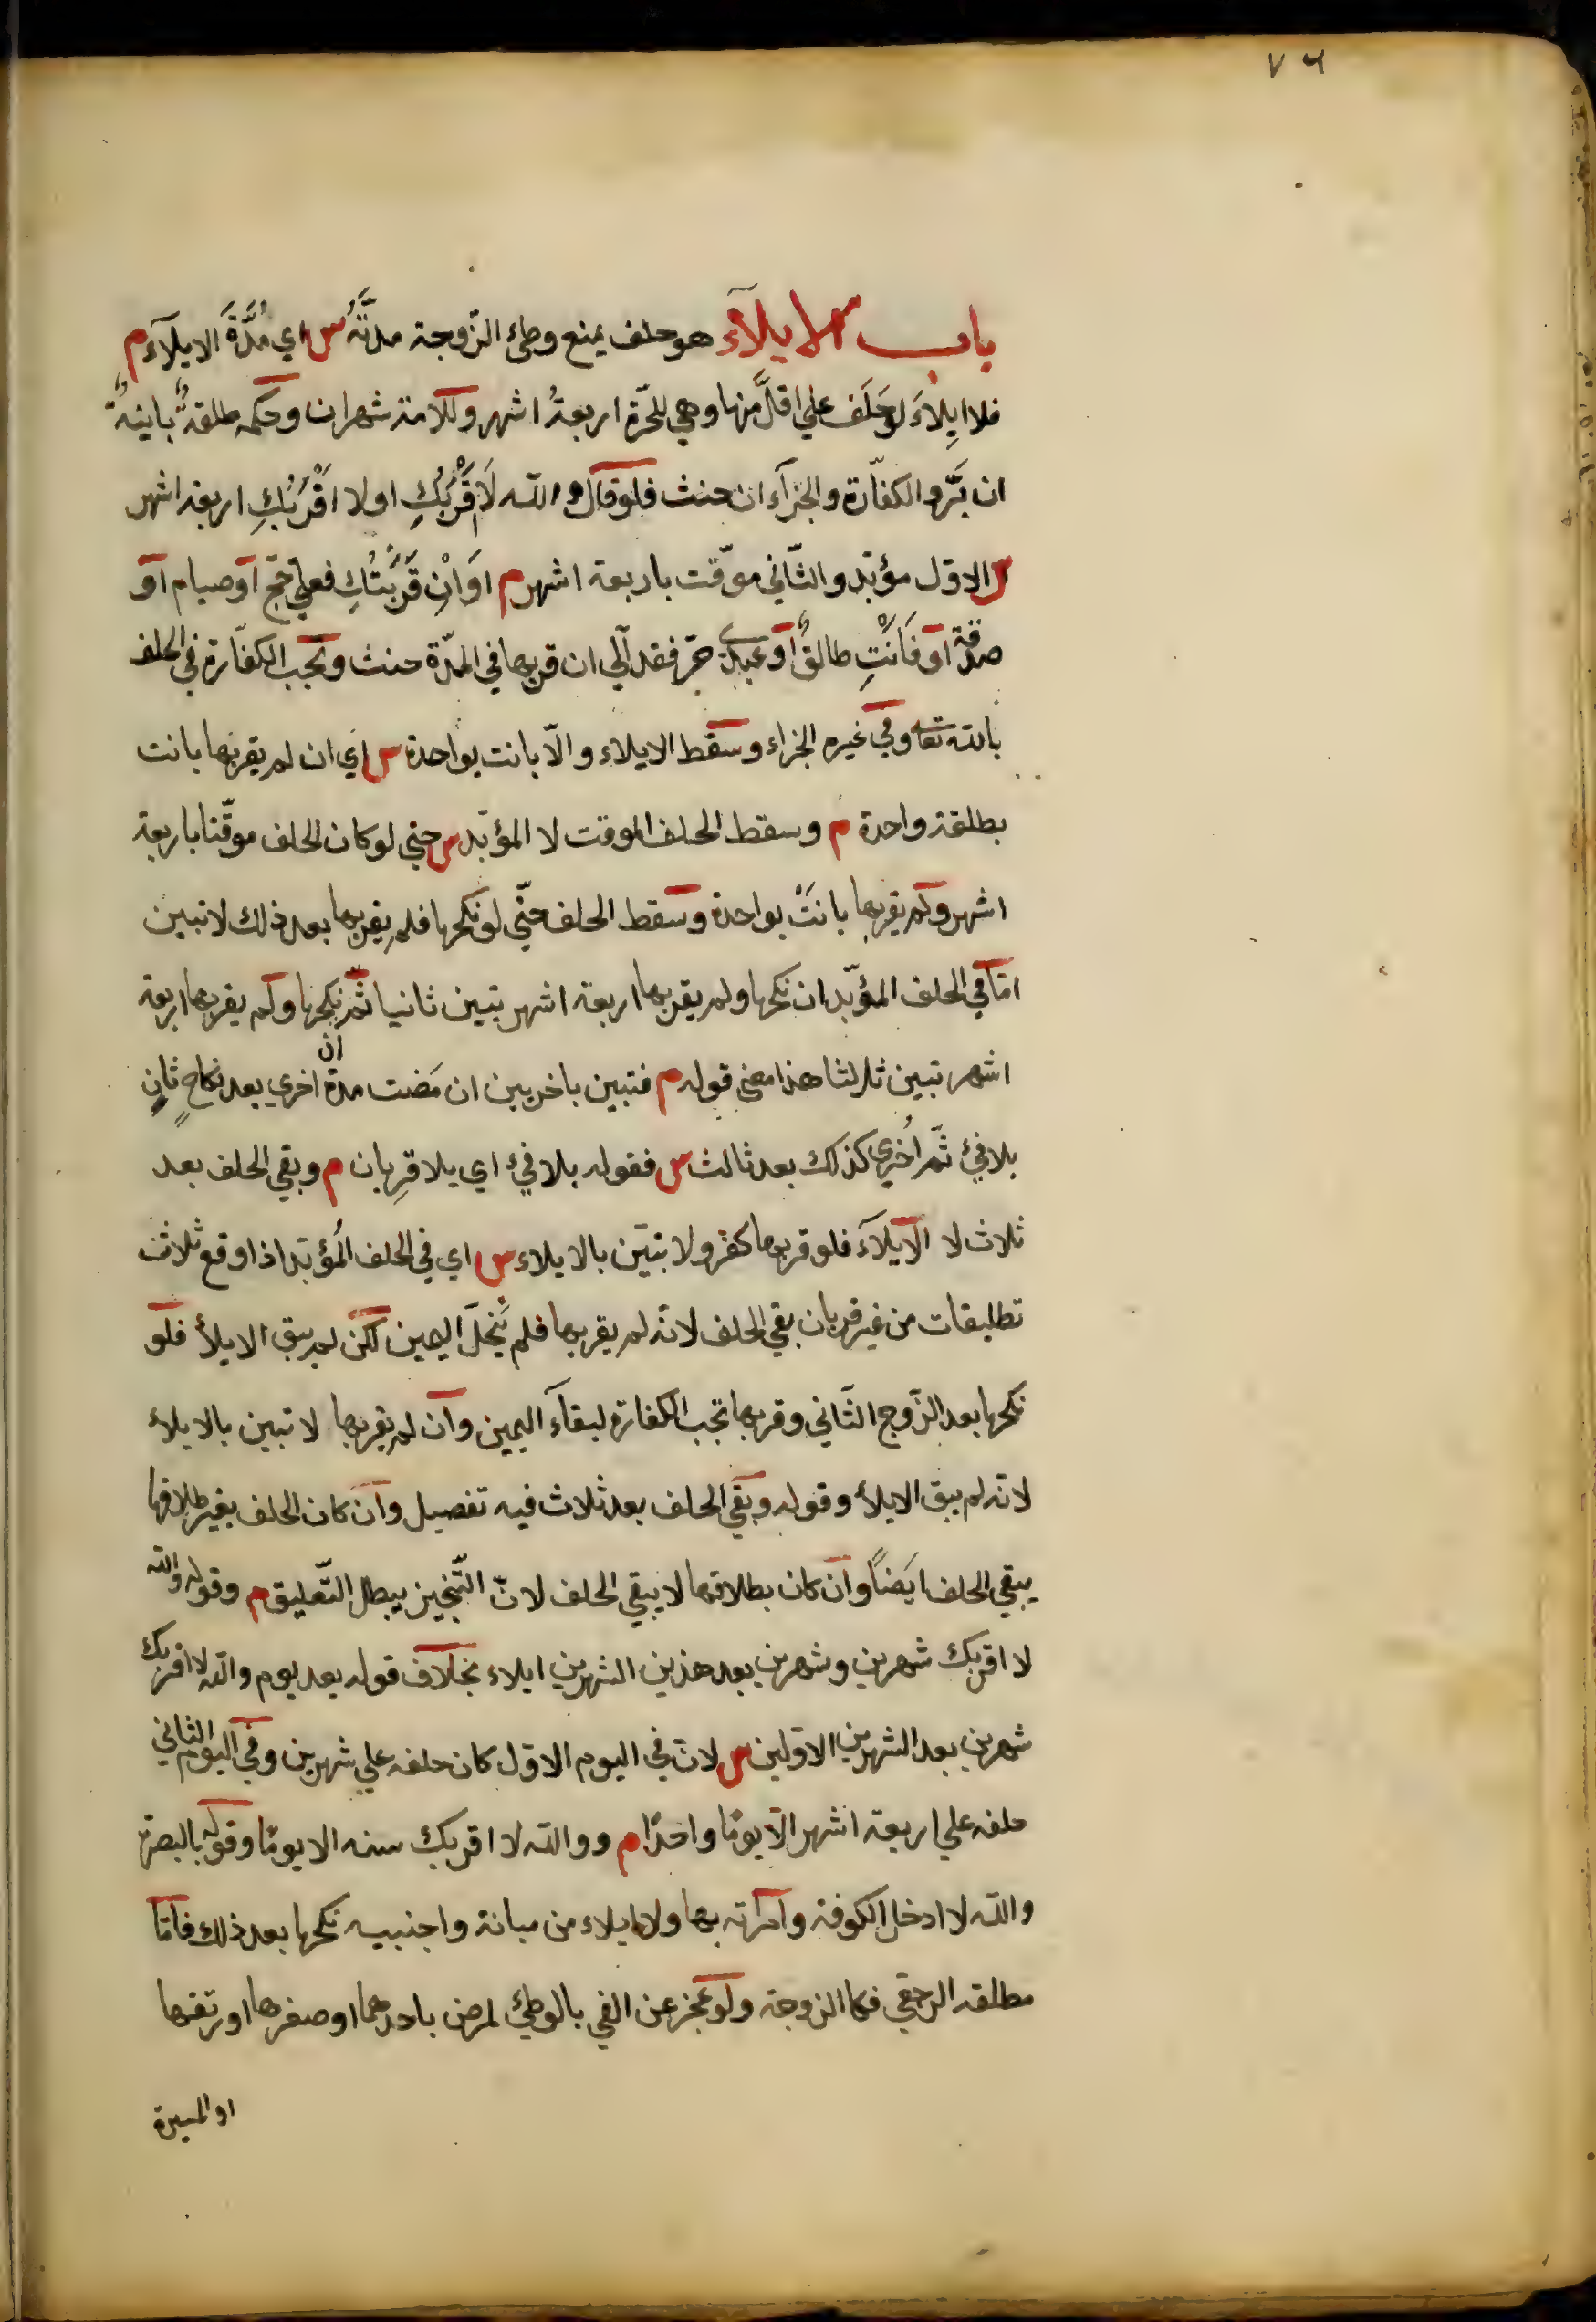 ٧٦
باب الايلآء هو حلف يمنع وطئ الزّوجة مدّتَهُ س اي مُدَّةَ الايلآء م
فلا ايِلاءَ لو حَلَف علي اقلَّ منها وهي للحرّة اربعةُ اشهر وللامة شهران وحكمه طلقةٌ باينةٌ
ان بَرَّ والكفّارة والجزآء ان حنث فلو قال والله لَا قْرَبُكِ او لا اقْرَبُكِ اربعة اشهر
س الاوّل مؤبّد والثّاني موقّت باربعة اشهر م اوَ انْ قَرَبْتُكِ فعلي حجّ او صيام او
صدقة او فَانْتِ طالقٌ او عبدي حرّ فقد آلي ان قربها في المدّة حنث وتجب الكفّارة في الحلف
بالله تعا وفي غيره الجزاء وسقط الايلاء والّا بانت بواحدة س اي ان لم يقربها بانت
بطلقة واحدة م وسقط الحلف الموقت لا المؤبّد س حتي لو كان الحلف موقّتا باربعة
اشهر ولم يقربها بانَتْ بواحدة وسقط الحلف حتّي لو نكحها فلم يقربها بعد ذلك لا تبين
امّا في الحلف المؤبّد ان نكحها ولم يقربها اربعة اشهر تبين ثانيا ثمّ نكحها ولم يقربها اربعة
اشهر تبين ثالثا هذا معني قوله م فتبين باخريين ان مَضت مدة ان اخري بعد نكاحٍ ثانٍ
بلا فيْ ثمّ اُخري كذلك بعد ثالث س فقوله بلا فيْ اي بلا قِربان م وبقي الحلف بعد
ثلاث لا الايلآء فلو قربها كفّر ولا تبين بالايلاء س اي في الحلف المُؤبّد اذا وقع ثلاث
تطليقات من غير قربان بقي الحلف لانّه لم يقربها فلم يَنْحَلّ اليمين لكن لم يبق الايلأ فلو
نكحها بعد الزّوج الثّاني وقربها تجب الكفارة لبقآء اليمين وان لم يقربها لا تبين بالايلأ
لانه لم يبق الايلأ وقوله وبقي الحلف بعد ثلاث فيه تفصيل وان كان الحلف بغير طلاقها
يبقي الحلف ايضَاً وان كان بطلاقها لا يبقي الحلف لانّ التّنجيز يبطل التّعليق م وقوله والله
لا اقربك شهرين وشهرين بعد هذين الشهرين ايلاء بخلاف قوله بعد يوم والله لا اقربك
شهرين بعد الشهرين الاوّلين س لانّ في اليوم الاوّل كان حلفه علي شهرين وفي اليوم الثاني
حلفه علي اربعة اشهر الّا يومًا واحدًا م ووالله لا اقربك سنه الا يومًا وقوله بالبصرة
والله لا ادخل الكوفة وامراته بها ولا ايلاء من مبانة واجنبيه نكحها بعد ذلك فامّا
مطلقه الرجعي فكالزوجة ولو عجز عن الفي بالوطئ لمرض باحدهما او صغرها او رتقها
او المسيرة